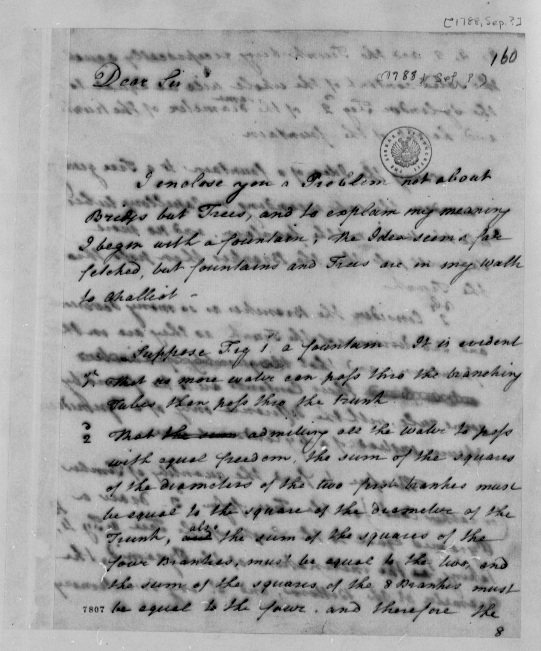 [1788, Sep.?]
160
(1788, Sep. ?)
Dear Sir
THE LIBRARY OF CONGRESS
I enclose you a Problem not about
Bridges but Trees, and to explain my meaning
I begin with a fountain, the Idea seems far
fetched, but fountains and Trees are in my walk
to Challiot -
Suppose Fig 1st a fountain. It is evident
1st That no more water can pass thro the branching
Tubes than pass thro the trunk.
2 That the sum admitting all the water to pass
with equal freedom, the sum of the squares
of the diameters of the two first branches must
be equal to the square of the diameter of the
Trunk, and also the sum of the squares of the
four Branches, must be equal to the two, and
the sum of the squares of the 8 Branches must
be equal to the four. and therefore the
7807
8